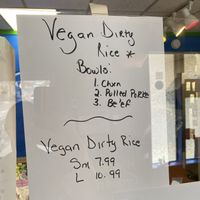 Vegan Dirty
Rice *
Bowls:
1. Chxn
2. Pulled Porkke
3. Be'ef
Vegan Dirty Rice
Sm 7.99
L 10.99